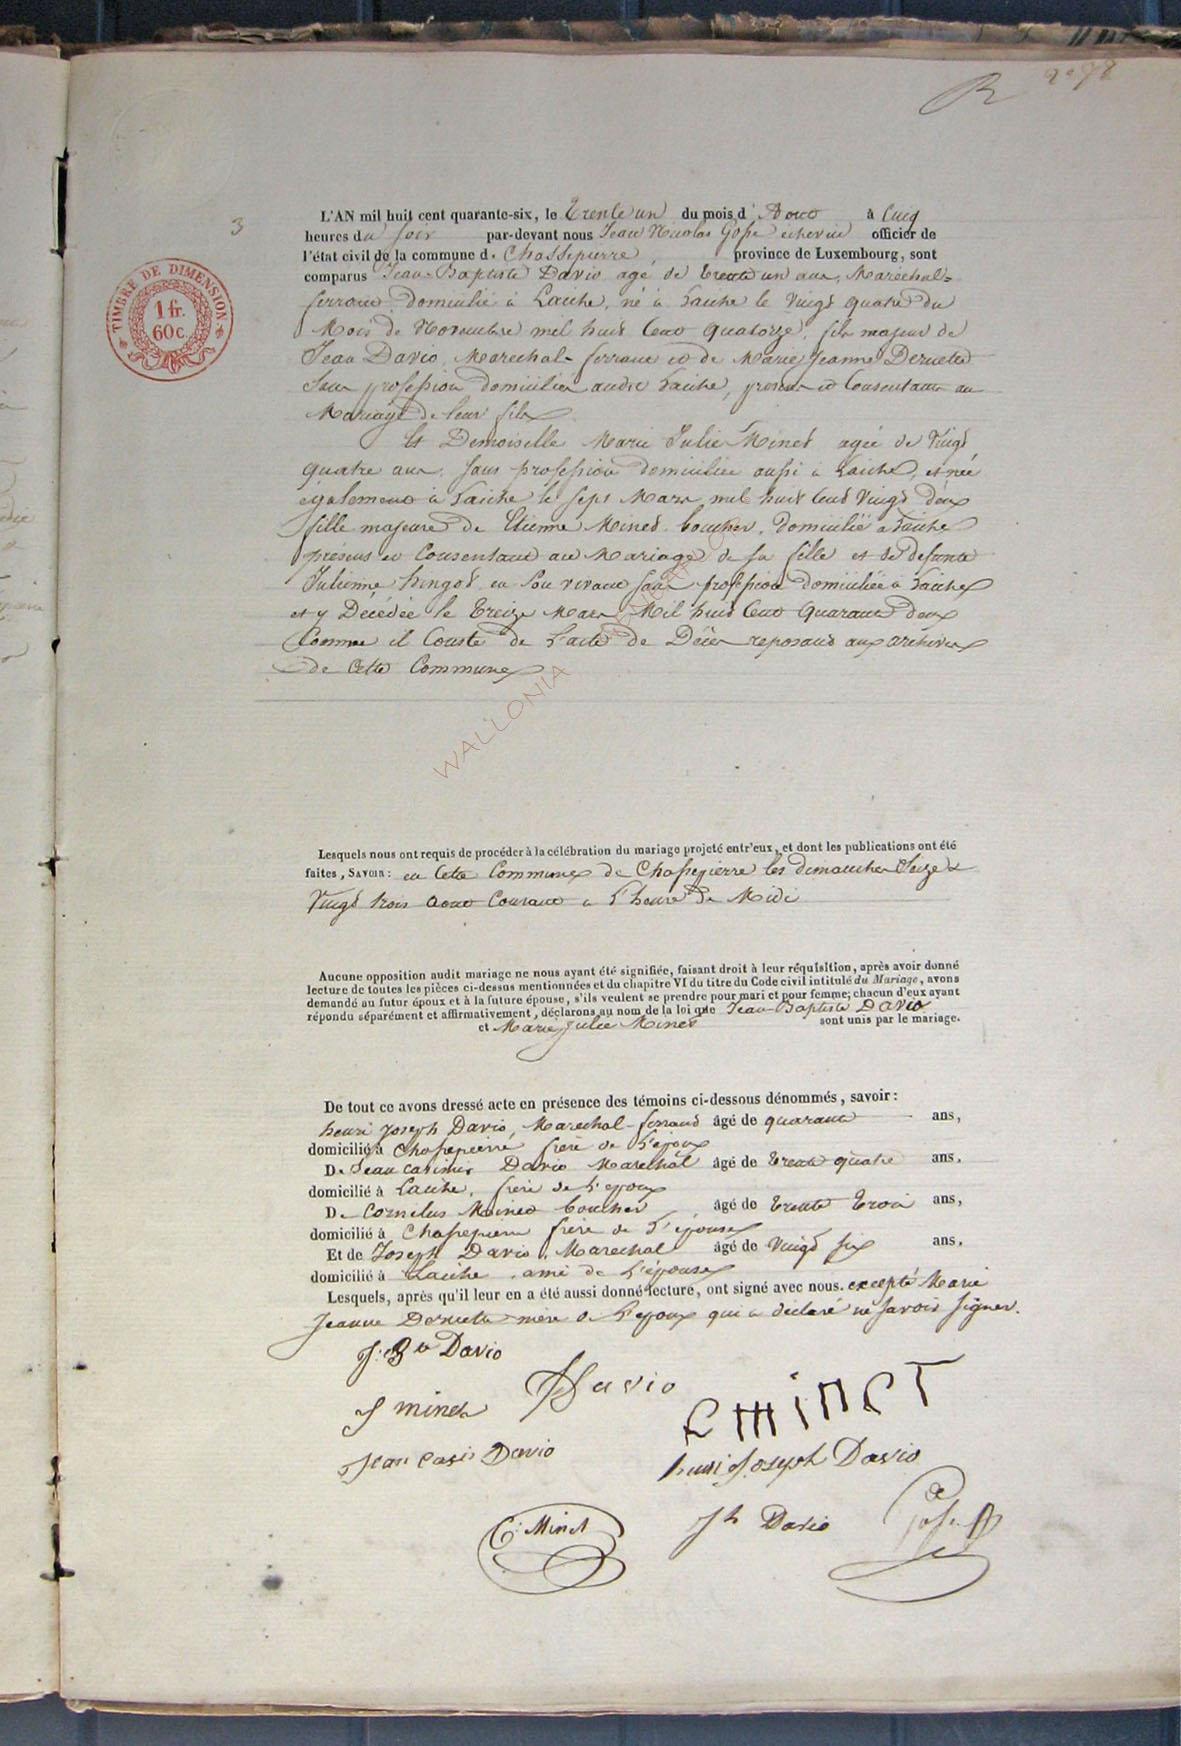 3
TIMBRE DE DIMENSION
1 fr.
60 c
L'AN mil huit cent quarante-six, le trente un du mois d'Aout à Cinq
heures du soir par-devant nous Jean Nicolas Gosse échevin officier de
l'état civil de la commune de Chassepierre, province de Luxembourg, sont
comparus Jean-Baptiste Davio agé de trente un ans, Maréchal-
ferrant domicilié à Laiche, né à Laiche le Vingt quatre du
Mois de Novembre mil huit Cent quatorze, fils majeur de
Jean Davio, Marechal-ferrant et de Marie Jeanne
sans profession domiciliés audit Laiche, présens et Consentant au
Mariage de leur fils
Et Demoiselle Marie Julie Minet agée de Vingt
quatre ans, sans profession domiciliée aussi à Laiche, et née
également à Laiche le sept Mars mil huit Cent Vingt deux
fille majeure de Etienne Minet boucher, domicilié à Laiche
présens et Consentant au Mariage de sa fille et de defunte
Julienne en son vivant sans profession domiciliée à Laiche
et y Décédée le treize Mars Mil huit Cent quarante deux
Comme il Conste de l'acte de Décès reposant aux archives
de Cette Commune
WALLONIA
Lesquels nous ont requis de procéder à la célébration du mariage projeté entr'eux, et dont les publications ont été
faites, SAVOIR: en Cette Commune de Chassepierre les dimanches Seize &
Vingt trois aout Courant à l'heure de Midi
Aucune opposition audit mariage ne nous ayant été signifiée, faisant droit à leur réquisition, après avoir donné
lecture de toutes les pièces ci-dessus mentionnées et du chapitre VI du titre du Code civil intitulé du Mariage, avons
demandé au futur époux et à la future épouse, s'ils veulent se prendre pour mari et pour femme; chacun d'eux ayant
répondu séparément et affirmativement, déclarons au nom de la loi que Jean-Baptiste Davio
et Marie Julie Minet sont unis par le mariage.
De tout ce avons dressé acte en présence des témoins ci-dessous dénommés, savoir:
henri Joseph Davio, Marechal-ferrand âgé de quarante ans,
domicilié à Chassepierre frère de l'epoux
De Jean Casimir Davio Marechal âgé de trente quatre ans,
domicilié à Laiche, frère de l'epoux
De Cornelus Minet boucher, âgé de trente trois ans,
domicilié à Chassepierre frère de l'epouse
Et de Joseph Davio, Marechal âgé de Vingt six ans,
domicilié à Laiche, ami de l'épouse
Lesquels, après qu'il leur en a été aussi donné lecture, ont signé avec nous. excepté Marie
Jeanne mère de l'epoux qui a déclaré ne savoir signer.
J. Bte Davio
Davio
J minet
E MINET
Jean Casi Davio
henri Joseph Davio
C: Minet
Jh Davio
Gosse